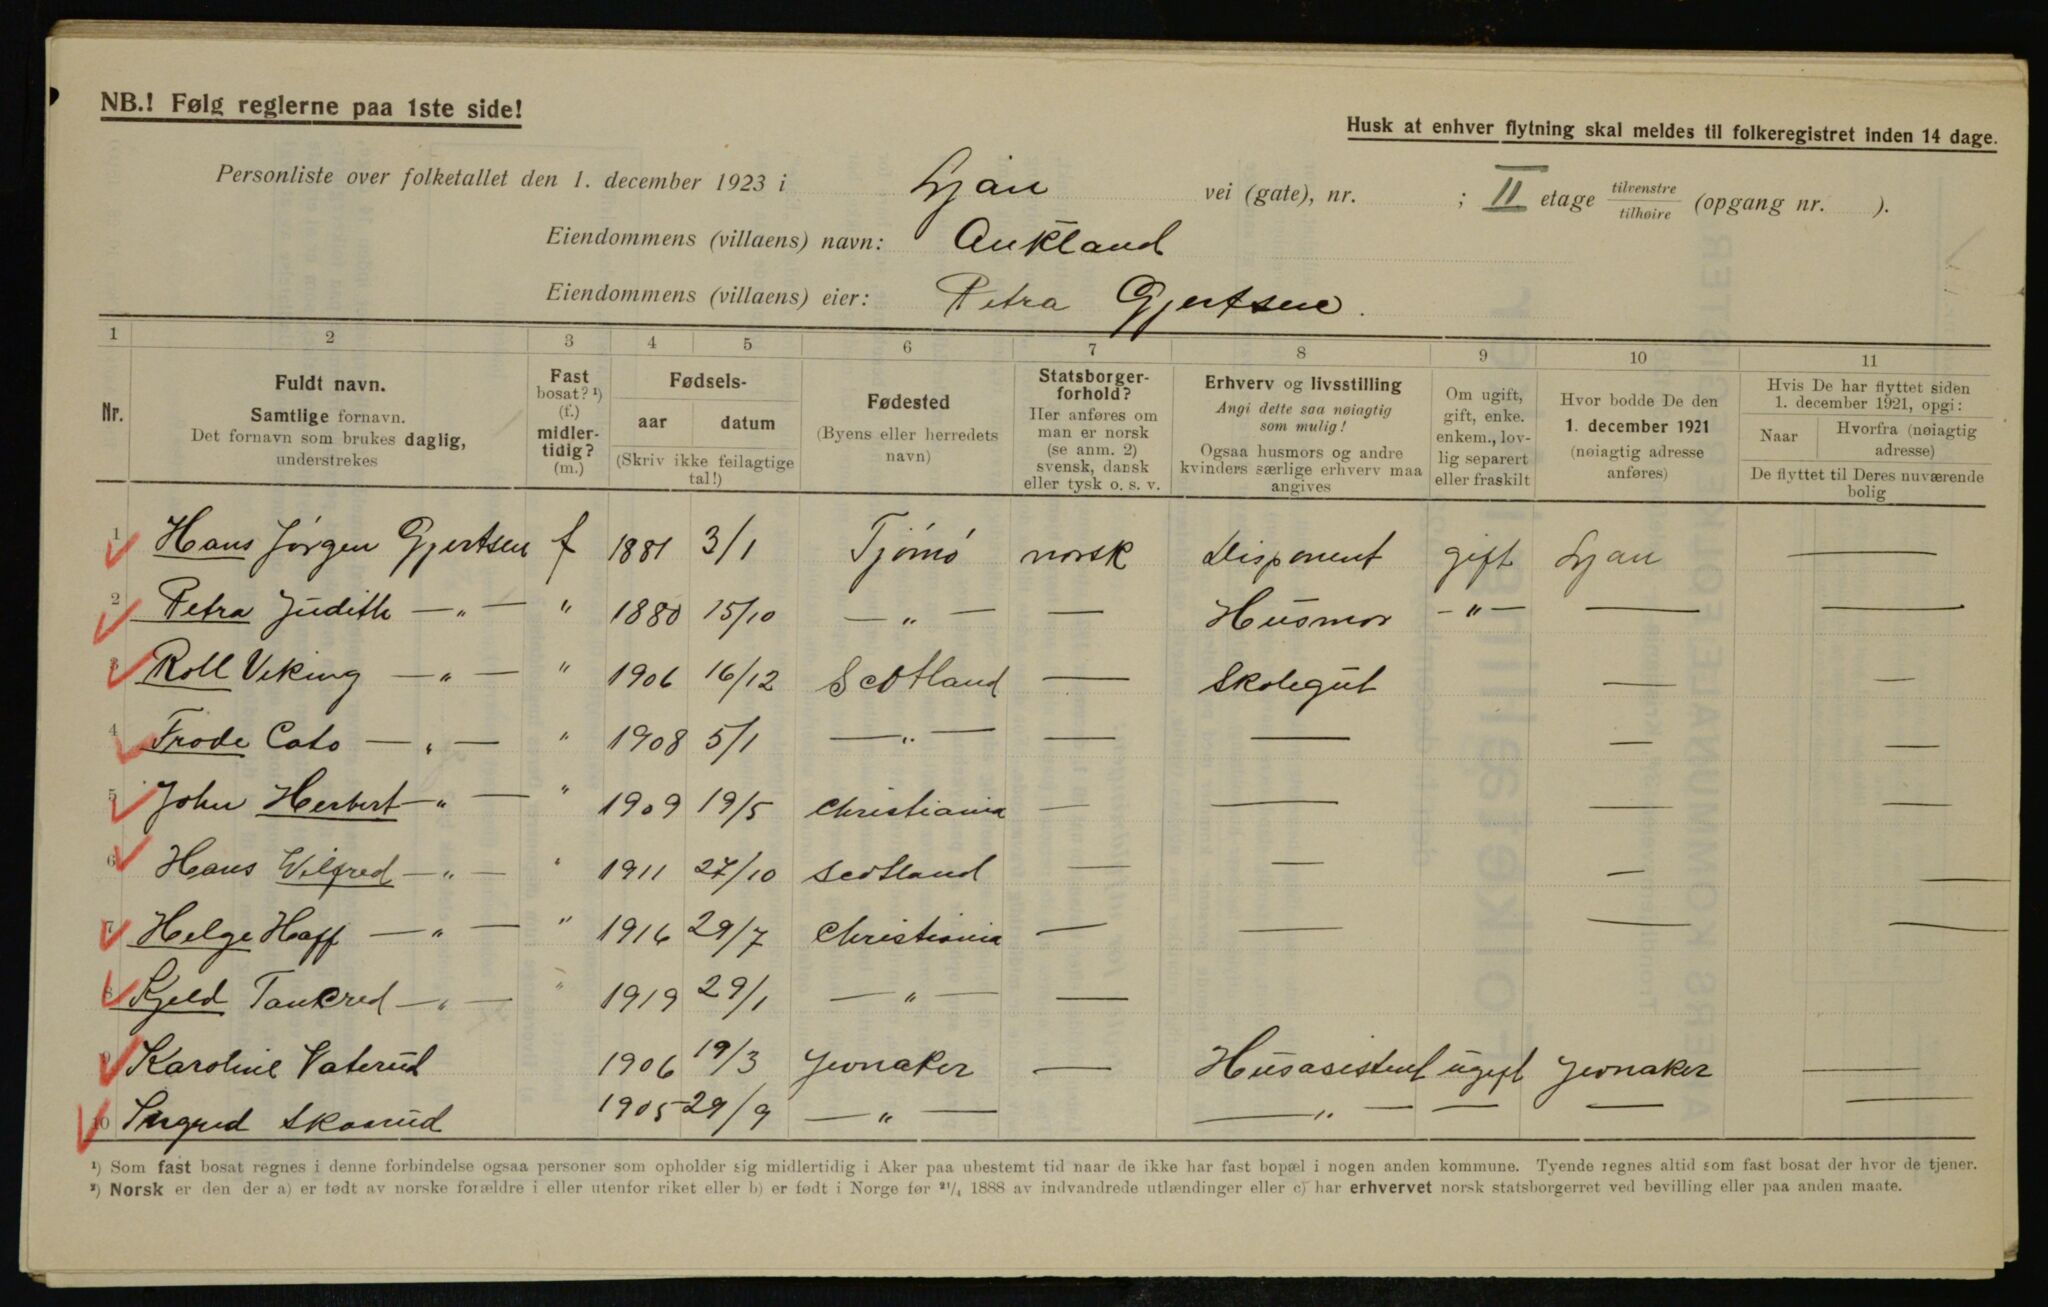 NB.! Følg reglerne paa 1ste side!
Husk at enhver flytning skal meldes til folkeregistret inden 14 dage.
Personliste over folketallet den 1. december 1923 i Ljan vei (gate), nr. ; II etage tilvenstre tilhøire (opgang nr. ).
Eiendommens (villaens) navn: Aukland
Eiendommens (villaens) eier: Petra Gjertsen.
1 2 3 4 5 6 7 8 9 10 11
Nr.
Fuldt navn.
Samtlige fornavn.
Det fornavn som brukes daglig,
understrekes
Fast
bosat? ¹)
(f.)
midler-
tidig?
(m.)
Fødsels-
aar datum
(Skriv ikke feilagtige
tal!)
Fødested
(Byens eller herredets
navn)
Statsborger-
forhold?
Her anføres om
man er norsk
(se anm. 2)
svensk, dansk
eller tysk o. s. v.
Erhverv og livsstilling
Angi dette saa nøiagtig
som mulig!
Ogsaa husmors og andre
kvinders særlige erhverv maa
angives
Om ugift,
gift, enke.
enkem., lov-
lig separert
eller fraskilt
Hvor bodde De den
1. december 1921
(nøiagtig adresse
anføres)
Hvis De har flyttet siden
1. december 1921, opgi:
Naar
Hvorfra (nøiagtig
adresse)
De flyttet til Deres nuværende
bolig
1 Hans Jørgen Gjertsen f 1881 3/1 Tjömö norsk Disponent gift Ljan —
2 Petra Judith — „ — " 1880 15/10 — „ — — Husmor — " — — —
3 Rolf Viking — „ — " 1906 16/12 Scotland — Skolegut — —
4 Frode Cato — „ — " 1908 5/1 — „ — — — — —
5 John Herbert — „ — " 1909 19/5 Christiania — — — —
6 Hans Wilfred — „ — " 1911 27/10 Scotland — — — —
7 Helge Haff — „ — " 1916 29/7 Christiania — — — —
8 Kjeld Tankred — „ — " 1919 29/1 — „ — —
9 Karoline Vaterud 1906 19/3 Jevnaker — Husasistent ugift Jevnaker —
10 Ingrid Skaarud 1905 29/9 — „ — — „ — — — —
¹) Som fast bosat regnes i denne forbindelse ogsaa personer som opholder sig midlertidig i Aker paa ubestemt tid naar de ikke har fast bopæl i nogen anden kommune. Tyende regnes altid som fast bosat der hvor de tjener.
²) Norsk er den der a) er født av norske forældre i eller utenfor riket eller b) er født i Norge før ²¹/₄ 1888 av indvandrede utlændinger eller c) har erhvervet norsk statsborgerret ved bevilling eller paa anden maate.